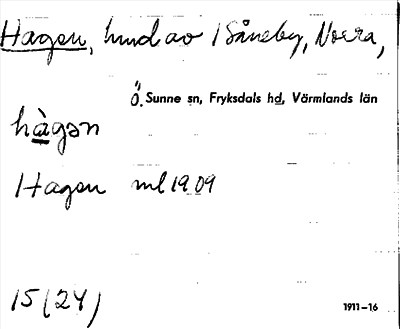 Hagen, hund av Båneby, Norra,
Ö. Sunne sn, Fryksdals hd, Värmlands län
hàgən
Hagen ml 1909
15(24)
1911-16